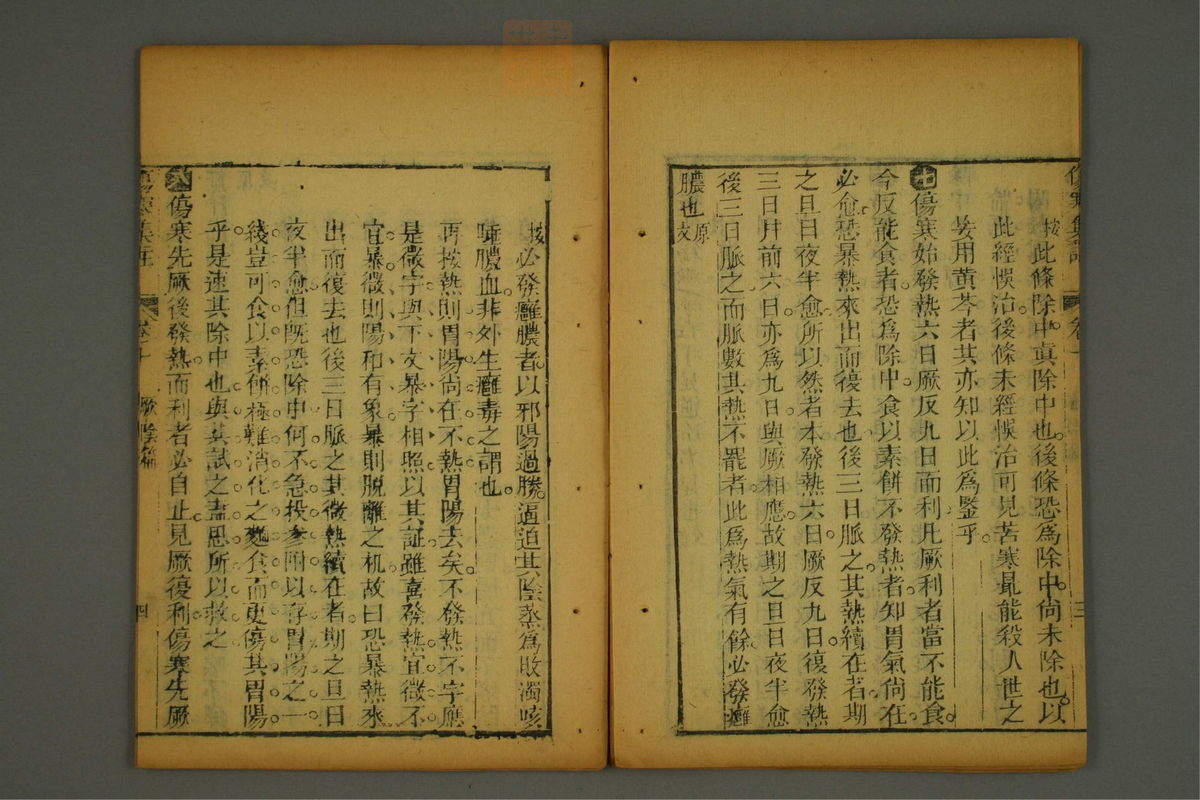 按此條除中眞除中也後條恐爲除中尙未除也以
此經悞治後條未經悞治可見苦寒最能殺人世之
妄用黃芩者其亦知以此爲鑒乎
傷寒始發熱六日厥反九日而利凡厥利者當不能食
今反能食者恐爲除中食以素餅不發熱者知胃氣尙在
必愈恐暴熱來出而復去也後三日脈之其熱續在者期
之旦日夜半愈所以然者本發熱六日厥反九日復發熱
三日幷前六日亦爲九日與厥相應故期之旦日夜半愈
後三日脈之而脈數其熱不罷者此爲熱氣有餘必發癰
膿也原文
按必發癰膿者以邪陽過勝逼迫其陰蒸爲敗濁咳
唾膿血非外生癰毒之謂也
再按熱則胃陽尙在不熱胃陽去矣不發熱不字應
是微字與下文暴字相照以其証雖喜發熱宜微不
宜暴微則陽和有象暴則脫離之机故曰恐暴熱來
出而復去也後三日脈之其微熱續在者期之旦日
夜半愈但旣恐除中何不急投參附以存胃陽之一
綫豈可食以素餅極難消化之麪食而更傷其胃陽
乎是速其除中也與其試之盍思所以救之
傷寒先厥後發熱而利者必自止見厥復利傷寒先厥
傷寒集註
卷十
厥陰篇
四